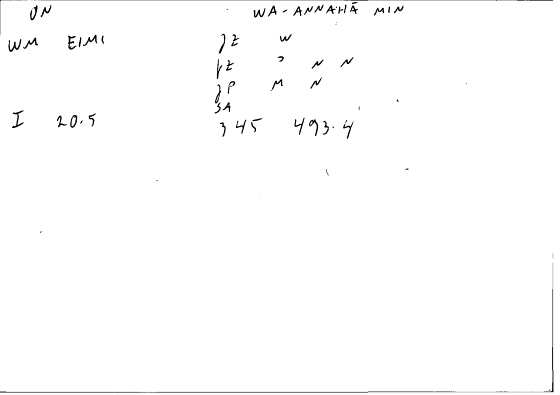 ON WA-ANNAHĀ MIN
WM EIMI JZ W
JZ ? N N
JP M N
SA
I 20.5 345 493.4